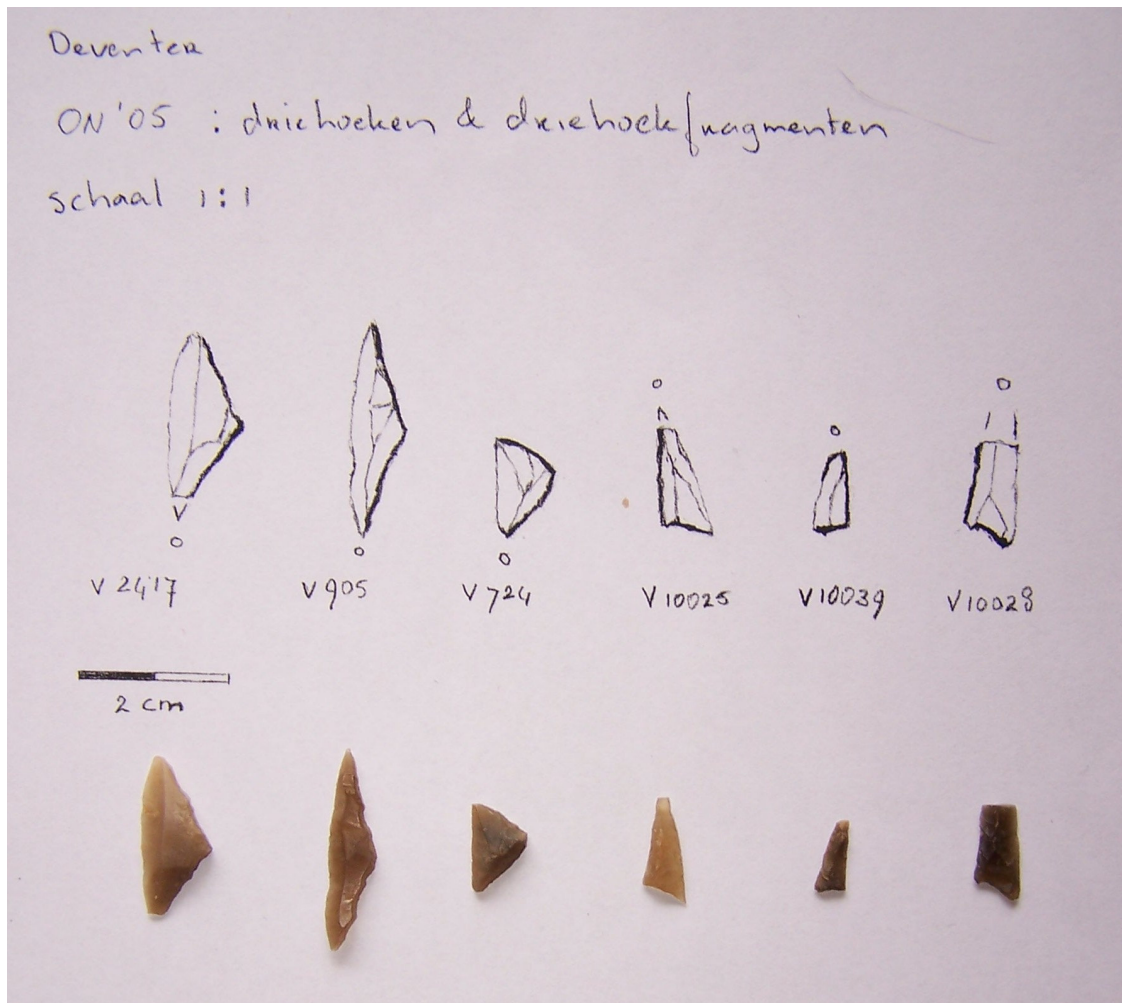 Deventer
ON '05 : driehoeken & driehoekfragmenten
schaal 1:1
V 2417 V 905 V 724 V 10025 V 10039 V 10028
2 cm